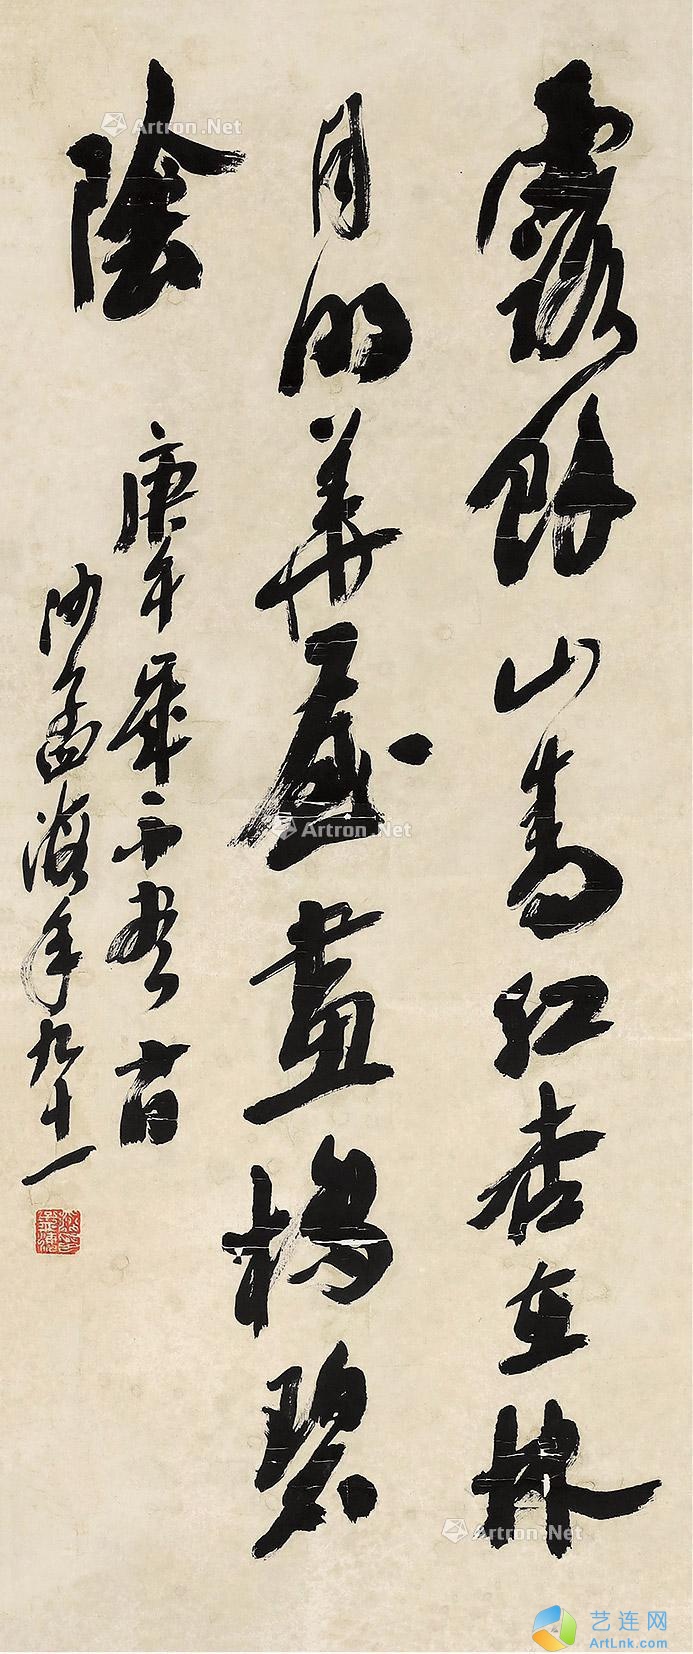 露餘山青红杏在林
月明華屋畫橋碧
陰
庚午歲不尽
沙孟海年九十一
Artron.Net
Artron.Net
Artron.Net
艺连网
ArtLnk.com